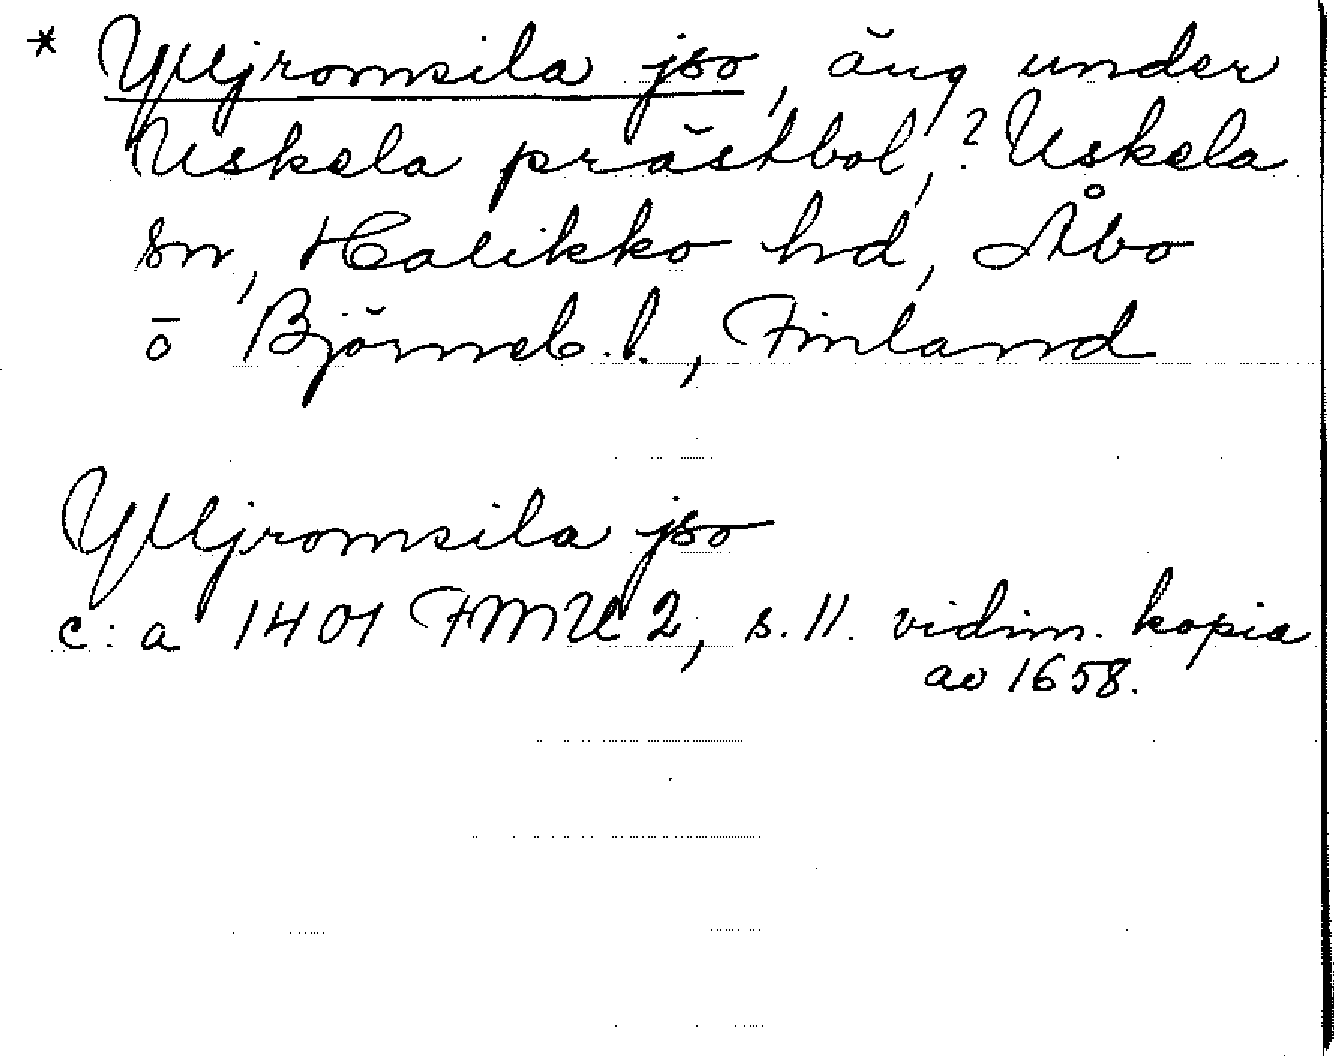 * Ylljromsila jso, äng under
Uskela prästbol, ? Uskela
sn, Halikko hd, Åbo
ō Björneb. l., Finland
Ylljromsila jso
c:a 1401 FMU 2, s. 11. vidim. kopia
av 1658.